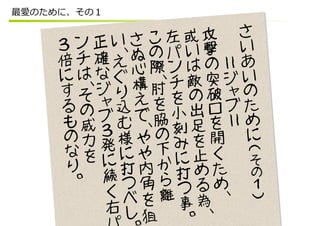 最愛のために、その１
さいあいのために(その1)
=ジャブ=
攻撃の突破口を開くため、
或いは敵の出足を止める為、
左パンチを小刻みに打つ事。
この際、肘を脇の下から離
さぬ心構えで、やや内角を狙
い、えぐり込む様に打つべし。
正確なジャブ3発に続く右パ
ンチは、その威力を
3倍にするものなり。